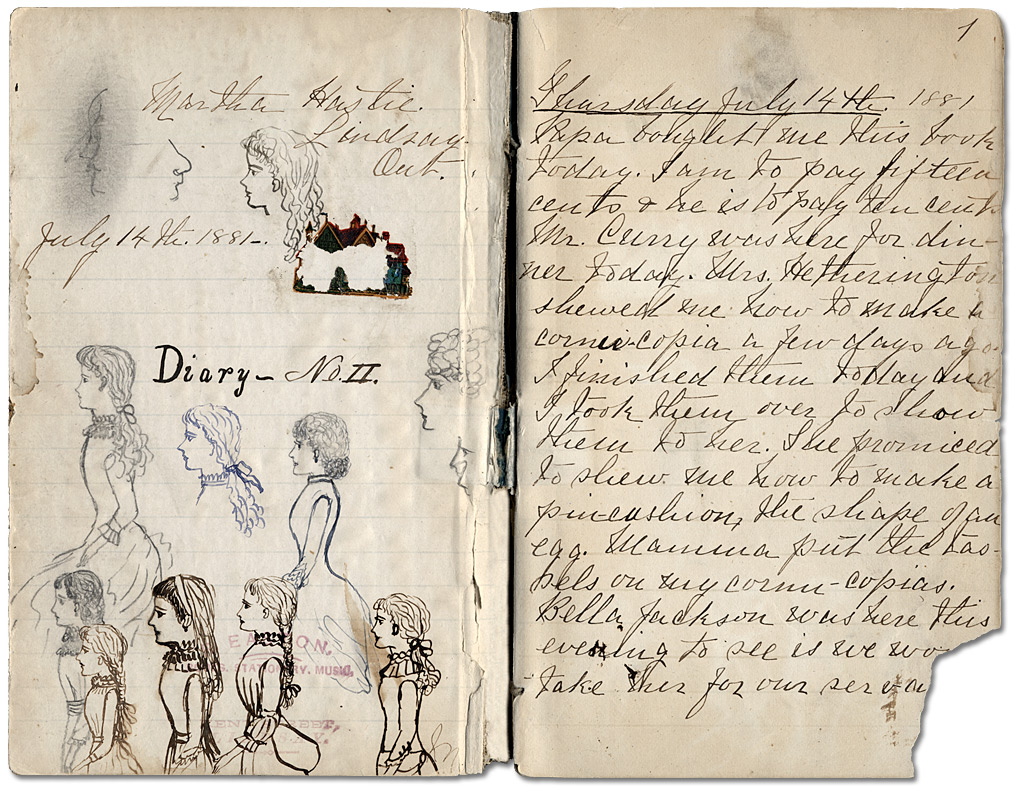 Martha Hastie.
Lindsay.
Ont.
July 14th. 1881.
Diary – No. II.
EATON,
STATIONERY. MUSIC,
REET,
1
Thursday July 14th. 1881
Papa bought me this book
today. I am to pay fifteen
cents & he is to pay ten cents
Mr. Curry was here for din-
ner today. Mrs. Hetherington
shewed me how to make a
corni-copia a few days ago.
I finished them today and
I took them over to show
them to her. She promiced
to shew me how to make a
pincushion, the shape of an
egg. Mamma put the tas-
sels on my corni-copias.
Bella Jackson was here this
evening to see is we wo
take her for our servan